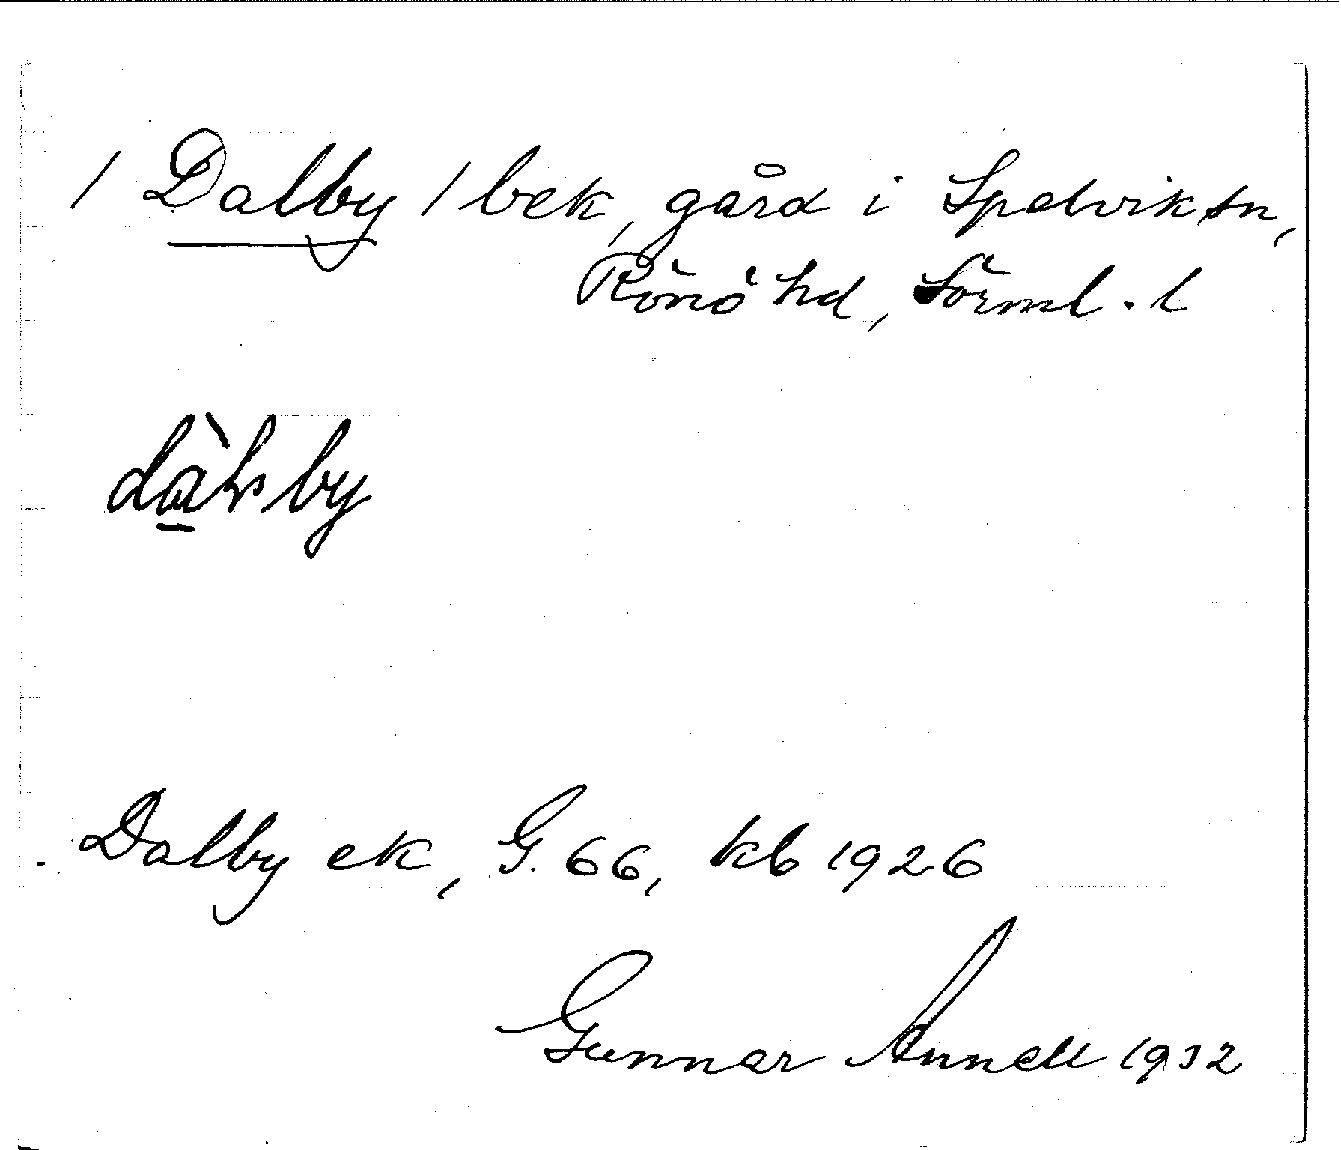 / Dalby / bek, gård i Spelvik sn,
Rönö hd, Sörml. l
Dalby ek, G. 66, kb 1926
Gunnar Annell 1932